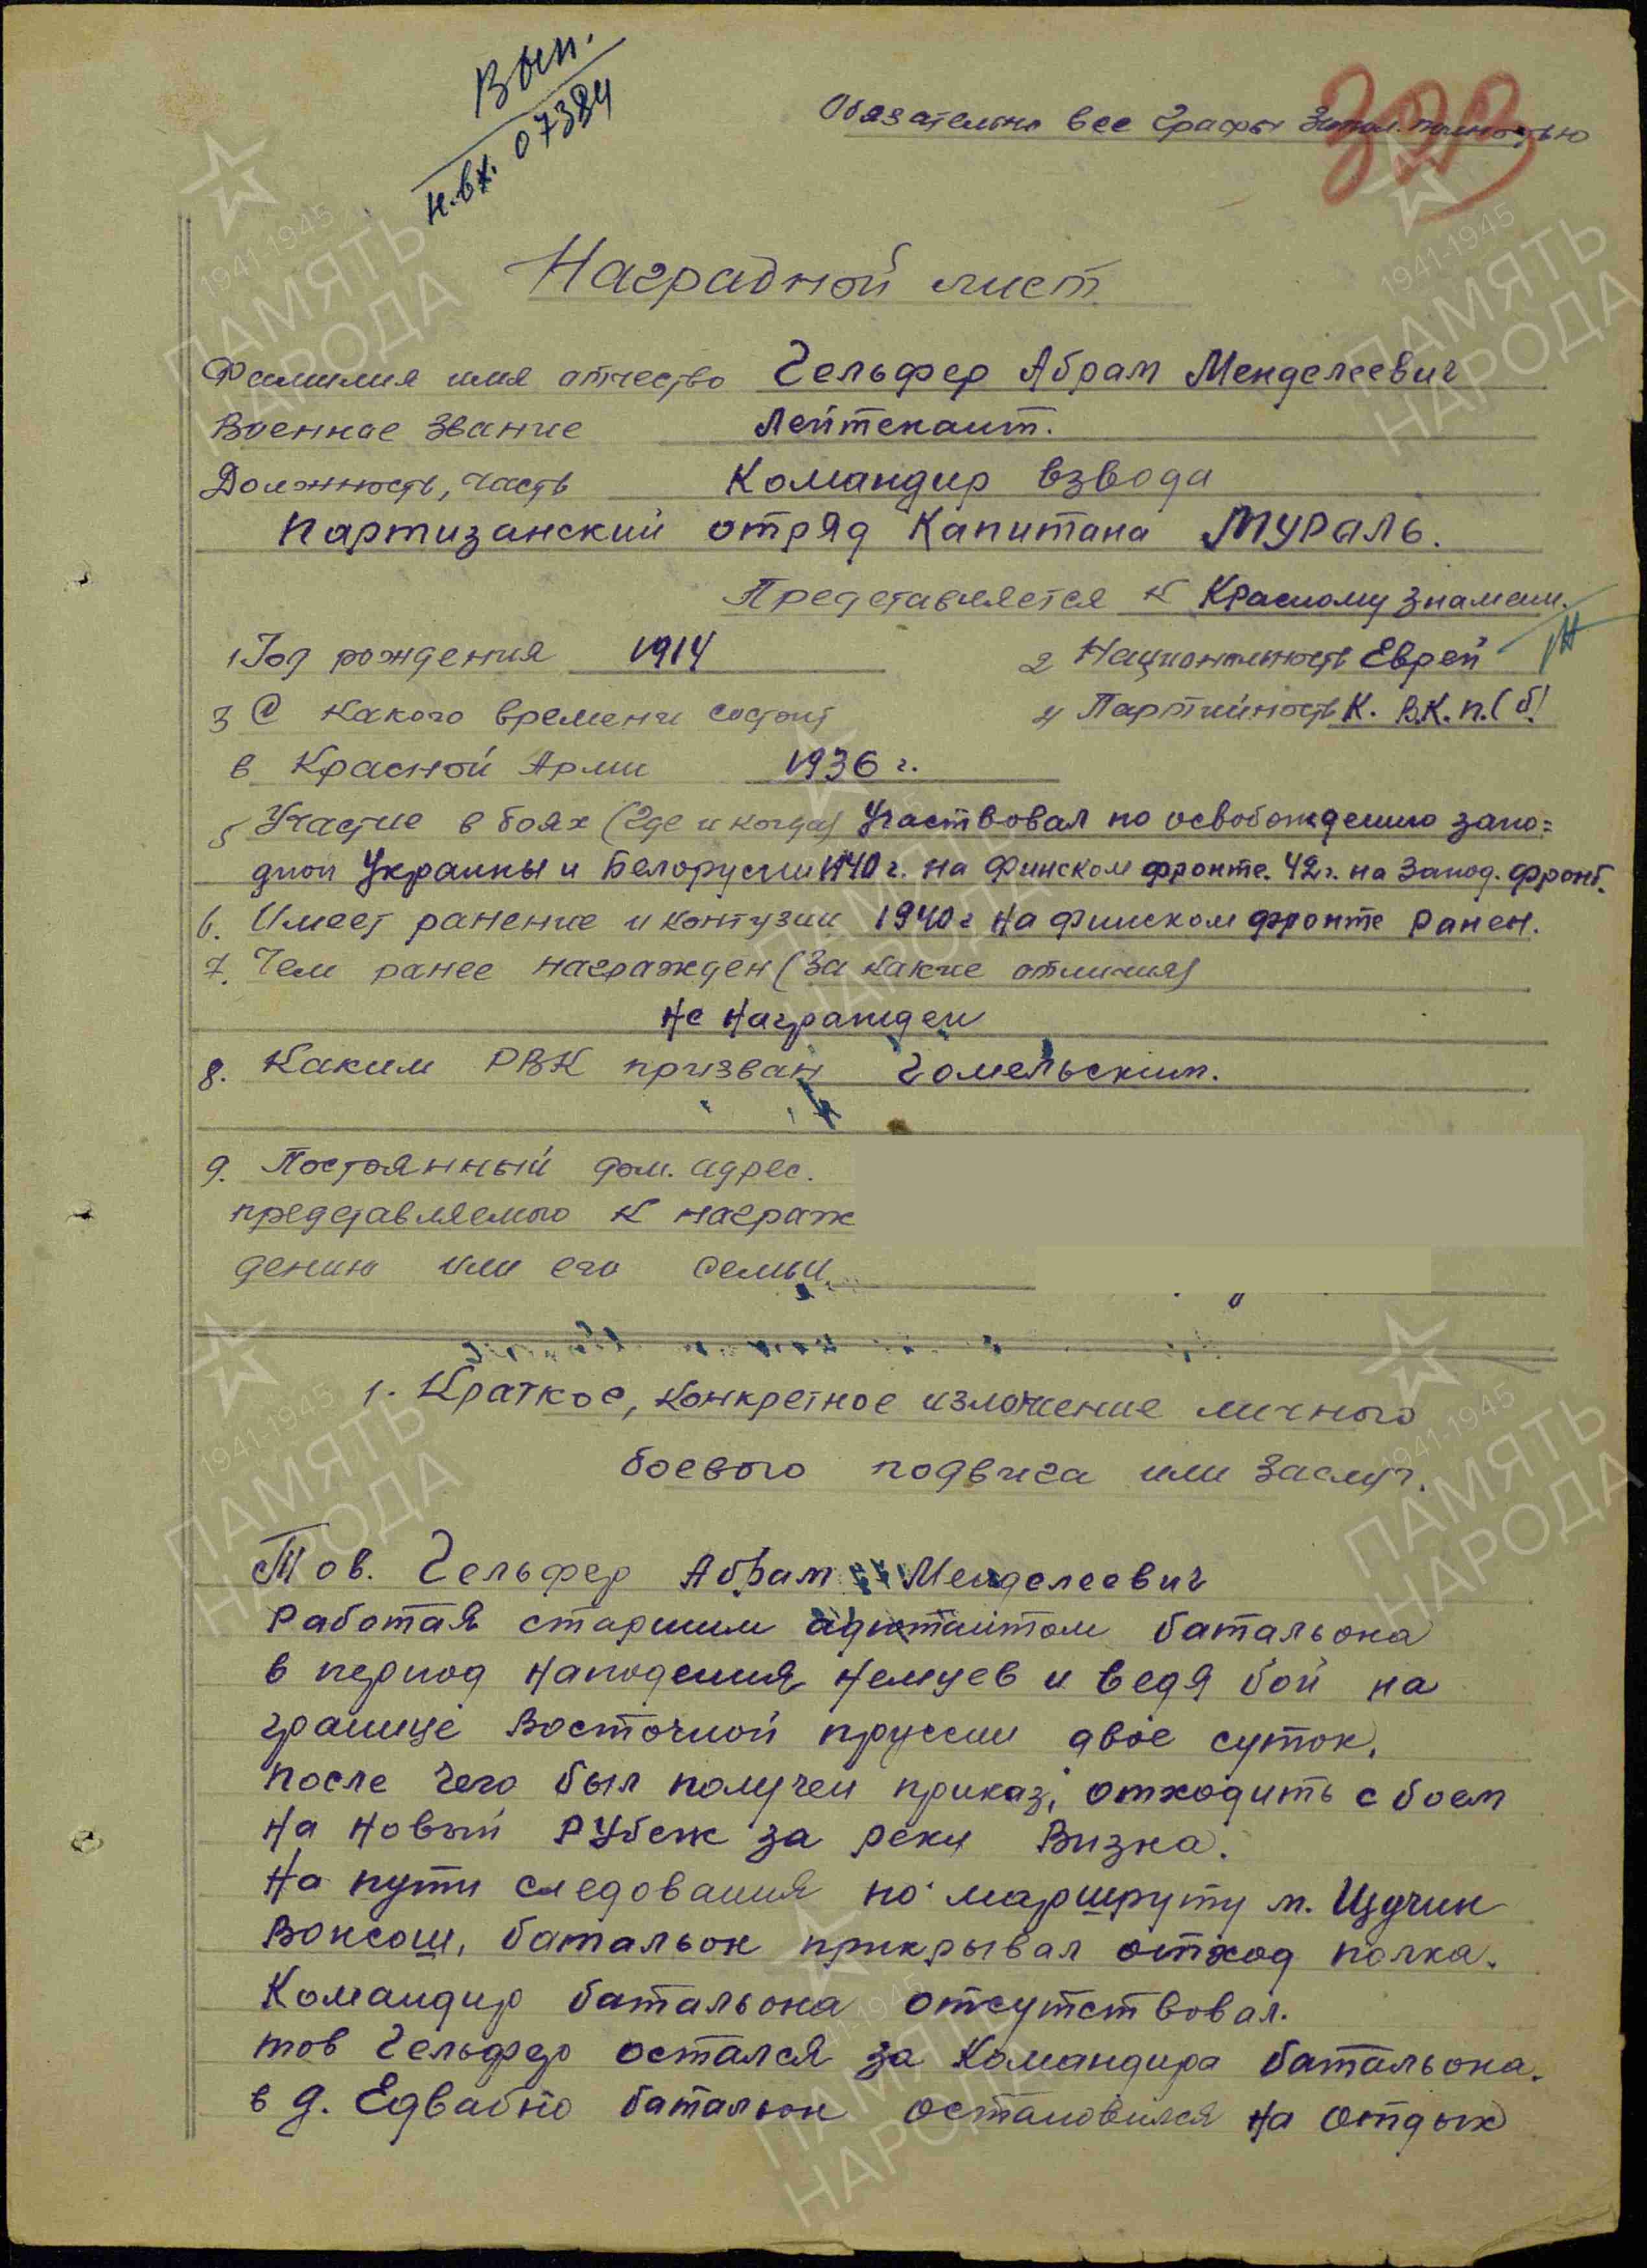 Вып.
н.вх. 07384
Обязательно все графы запол. полностью
Наградной лист
Фамилия имя отчество Гельфер Абрам Менделеевич
Военное звание Лейтенант.
Должность, часть Командир взвода
Партизанский отряд Капитана Мураль.
Представляется к Красному знамени.
1 Год рождения 1914 2 Национальность Еврей
3 С какого времени состоит 4 Партийность К. В.К.П.(б)
в Красной Арми 1936 г.
5 Участие в боях (где и когда) Участвовал по освобождению запо=
дной Украины и Белоруссии 1940 г. на Финском фронте. 42 г. на Запод. фронт.
6. Имеет ранение и контузии 1940 г на финском фронте ранен.
7. Чем ранее награжден (за какие отличия)
Не награжден
8. Каким РВК призван Гомельским.
9. Постоянный дом. адрес.
представляемого к награж
дению или его семьи.
1. Краткое, конкретное изложение личного
боевого подвига или заслуг.
Тов. Гельфер Абрам Менделеевич
Работая старшим адютантом батальона
в период нападения немцев и ведя бой на
границе Восточной пруссии двое суток.
после чего был получен приказ, отходить с боем
на новый рубеж за реку Визна.
На пути следования по маршруту м. Щучин
Вонсош, батальон прикрывал отход полка.
Командир батальона отсутствовал.
тов Гельфер остался за командира батальона.
в д. Едвабно батальон остановился на отдых
ПАМЯТЬ НАРОДА
1941-1945